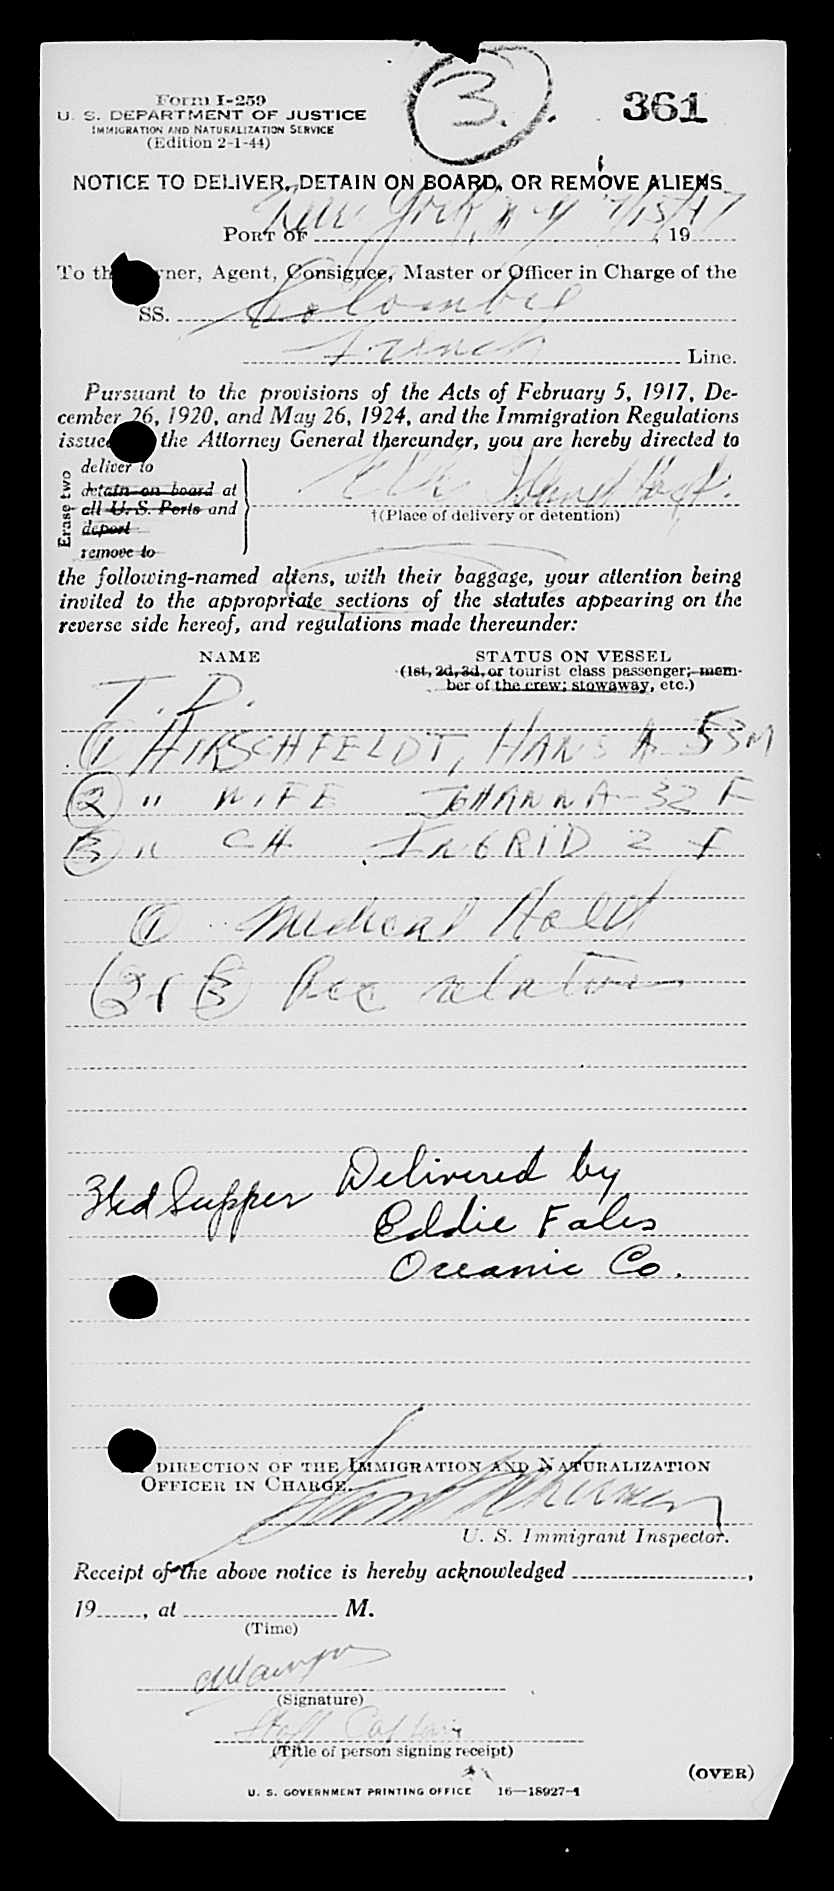 Form I-259
U. S. DEPARTMENT OF JUSTICE
IMMIGRATION AND NATURALIZATION SERVICE
(Edition 2-1-44)
3.
361
NOTICE TO DELIVER, DETAIN ON BOARD, OR REMOVE ALIENS
PORT OF New York, N Y 7/15/47, 19
To the Owner, Agent, Consignee, Master or Officer in Charge of the
SS. Colombie
French Line.
Pursuant to the provisions of the Acts of February 5, 1917, De-
cember 26, 1920, and May 26, 1924, and the Immigration Regulations
issued the Attorney General thereunder, you are hereby directed to
Erase two
deliver to
detain on board at
all U. S. Ports and
deport
remove to
Ellis Island Hosp.
†(Place of delivery or detention)
the following-named aliens, with their baggage, your attention being
invited to the appropriate sections of the statutes appearing on the
reverse side hereof, and regulations made thereunder:
NAME
STATUS ON VESSEL
(1st, 2d, 3d, or tourist class passenger; mem-
ber of the crew; stowaway, etc.)
T. D.
1 HIRSCHFELDT, HANS A 53 M
2 " WIFE JOHANNA - 32 F
3 " CH. INGRID 2 F
1 Medical Hold
2 + 3 Acc relative
3 Fed Supper Delivered by
Eddie Fales
Oceanic Co.
DIRECTION OF THE IMMIGRATION AND NATURALIZATION
OFFICER IN CHARGE.
U. S. Immigrant Inspector.
Receipt of the above notice is hereby acknowledged ,
19 , at M.
(Time)
(Signature)
Staff Captain
(Title of person signing receipt)
(OVER)
U. S. GOVERNMENT PRINTING OFFICE 16—18927-1